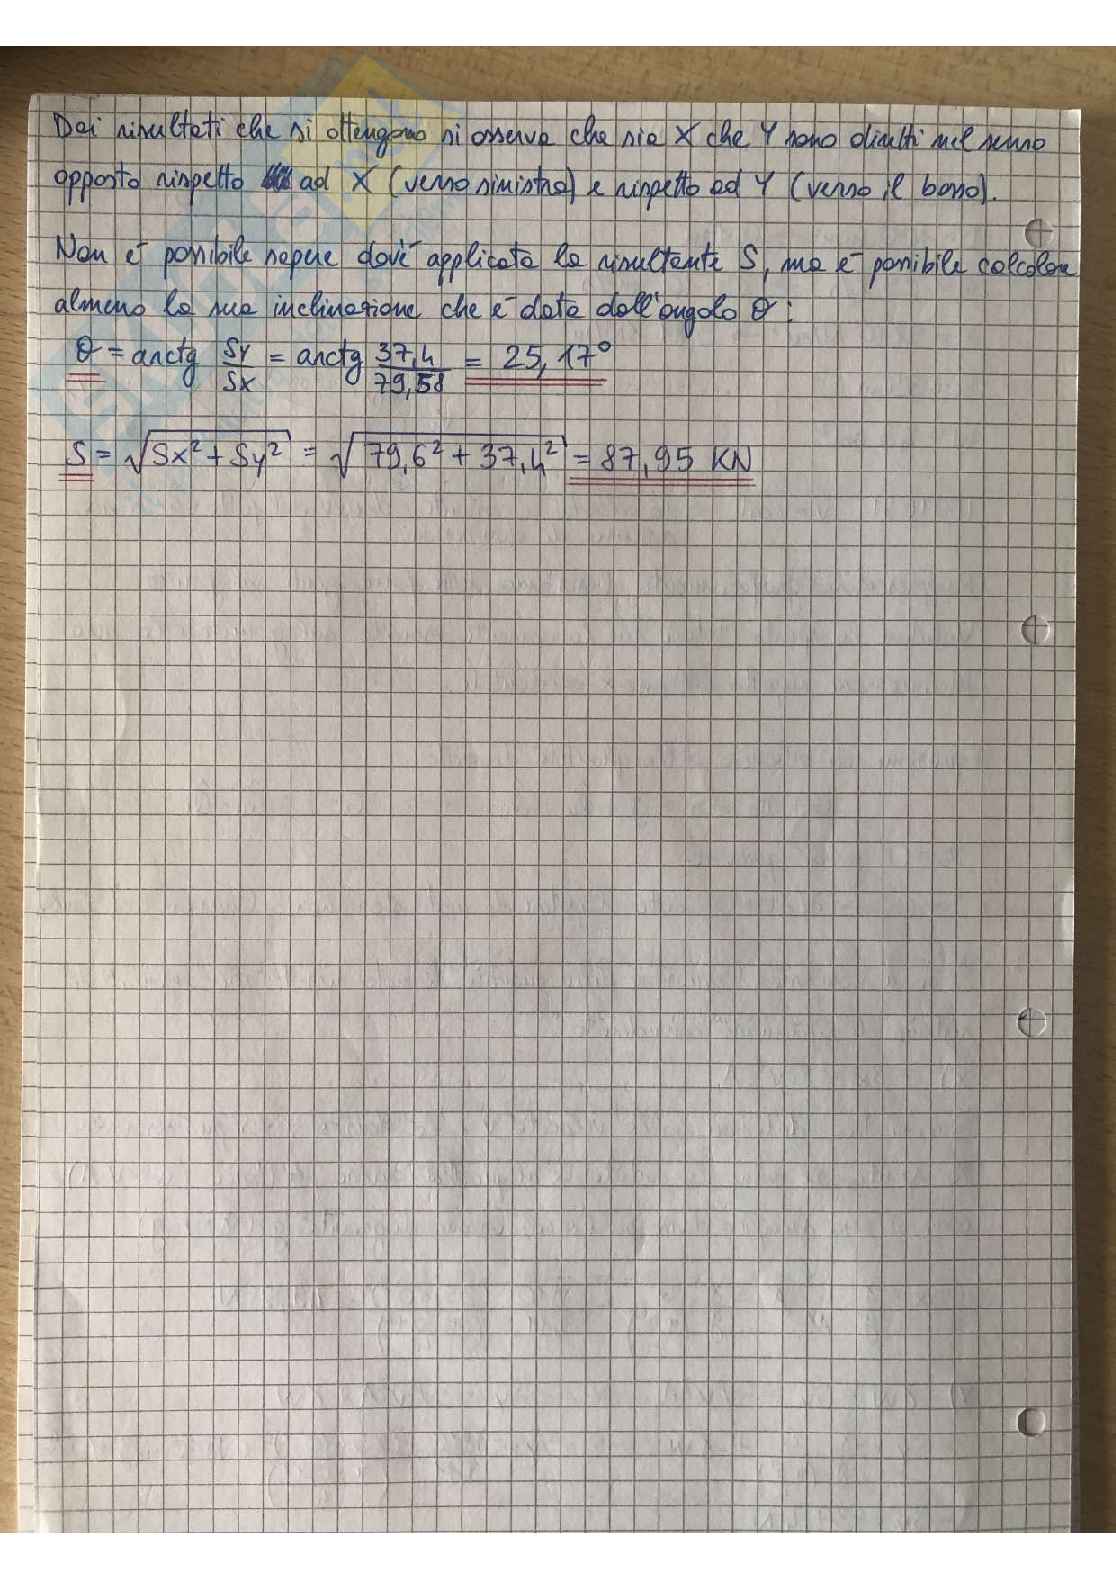 Dai risultati che si ottengono si osserva che sia X che Y sono diretti nel senso
opposto rispetto ad X (verso sinistra) e rispetto ad Y (verso il basso).
Non è possibile sapere dov'è applicata la risultante S, ma è possibile calcolare
almeno la sua inclinazione che è data dall'angolo θ:
θ = arctg Sy/Sx = arctg 37,4/79,58 = 25,17°
S = √Sx²+Sy² = √79,6²+37,4² = 87,95 KN